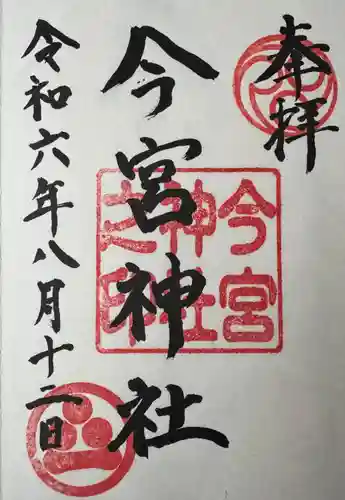 奉拝
今宮神社
今宮
神社
之印
令和六年八月十二日